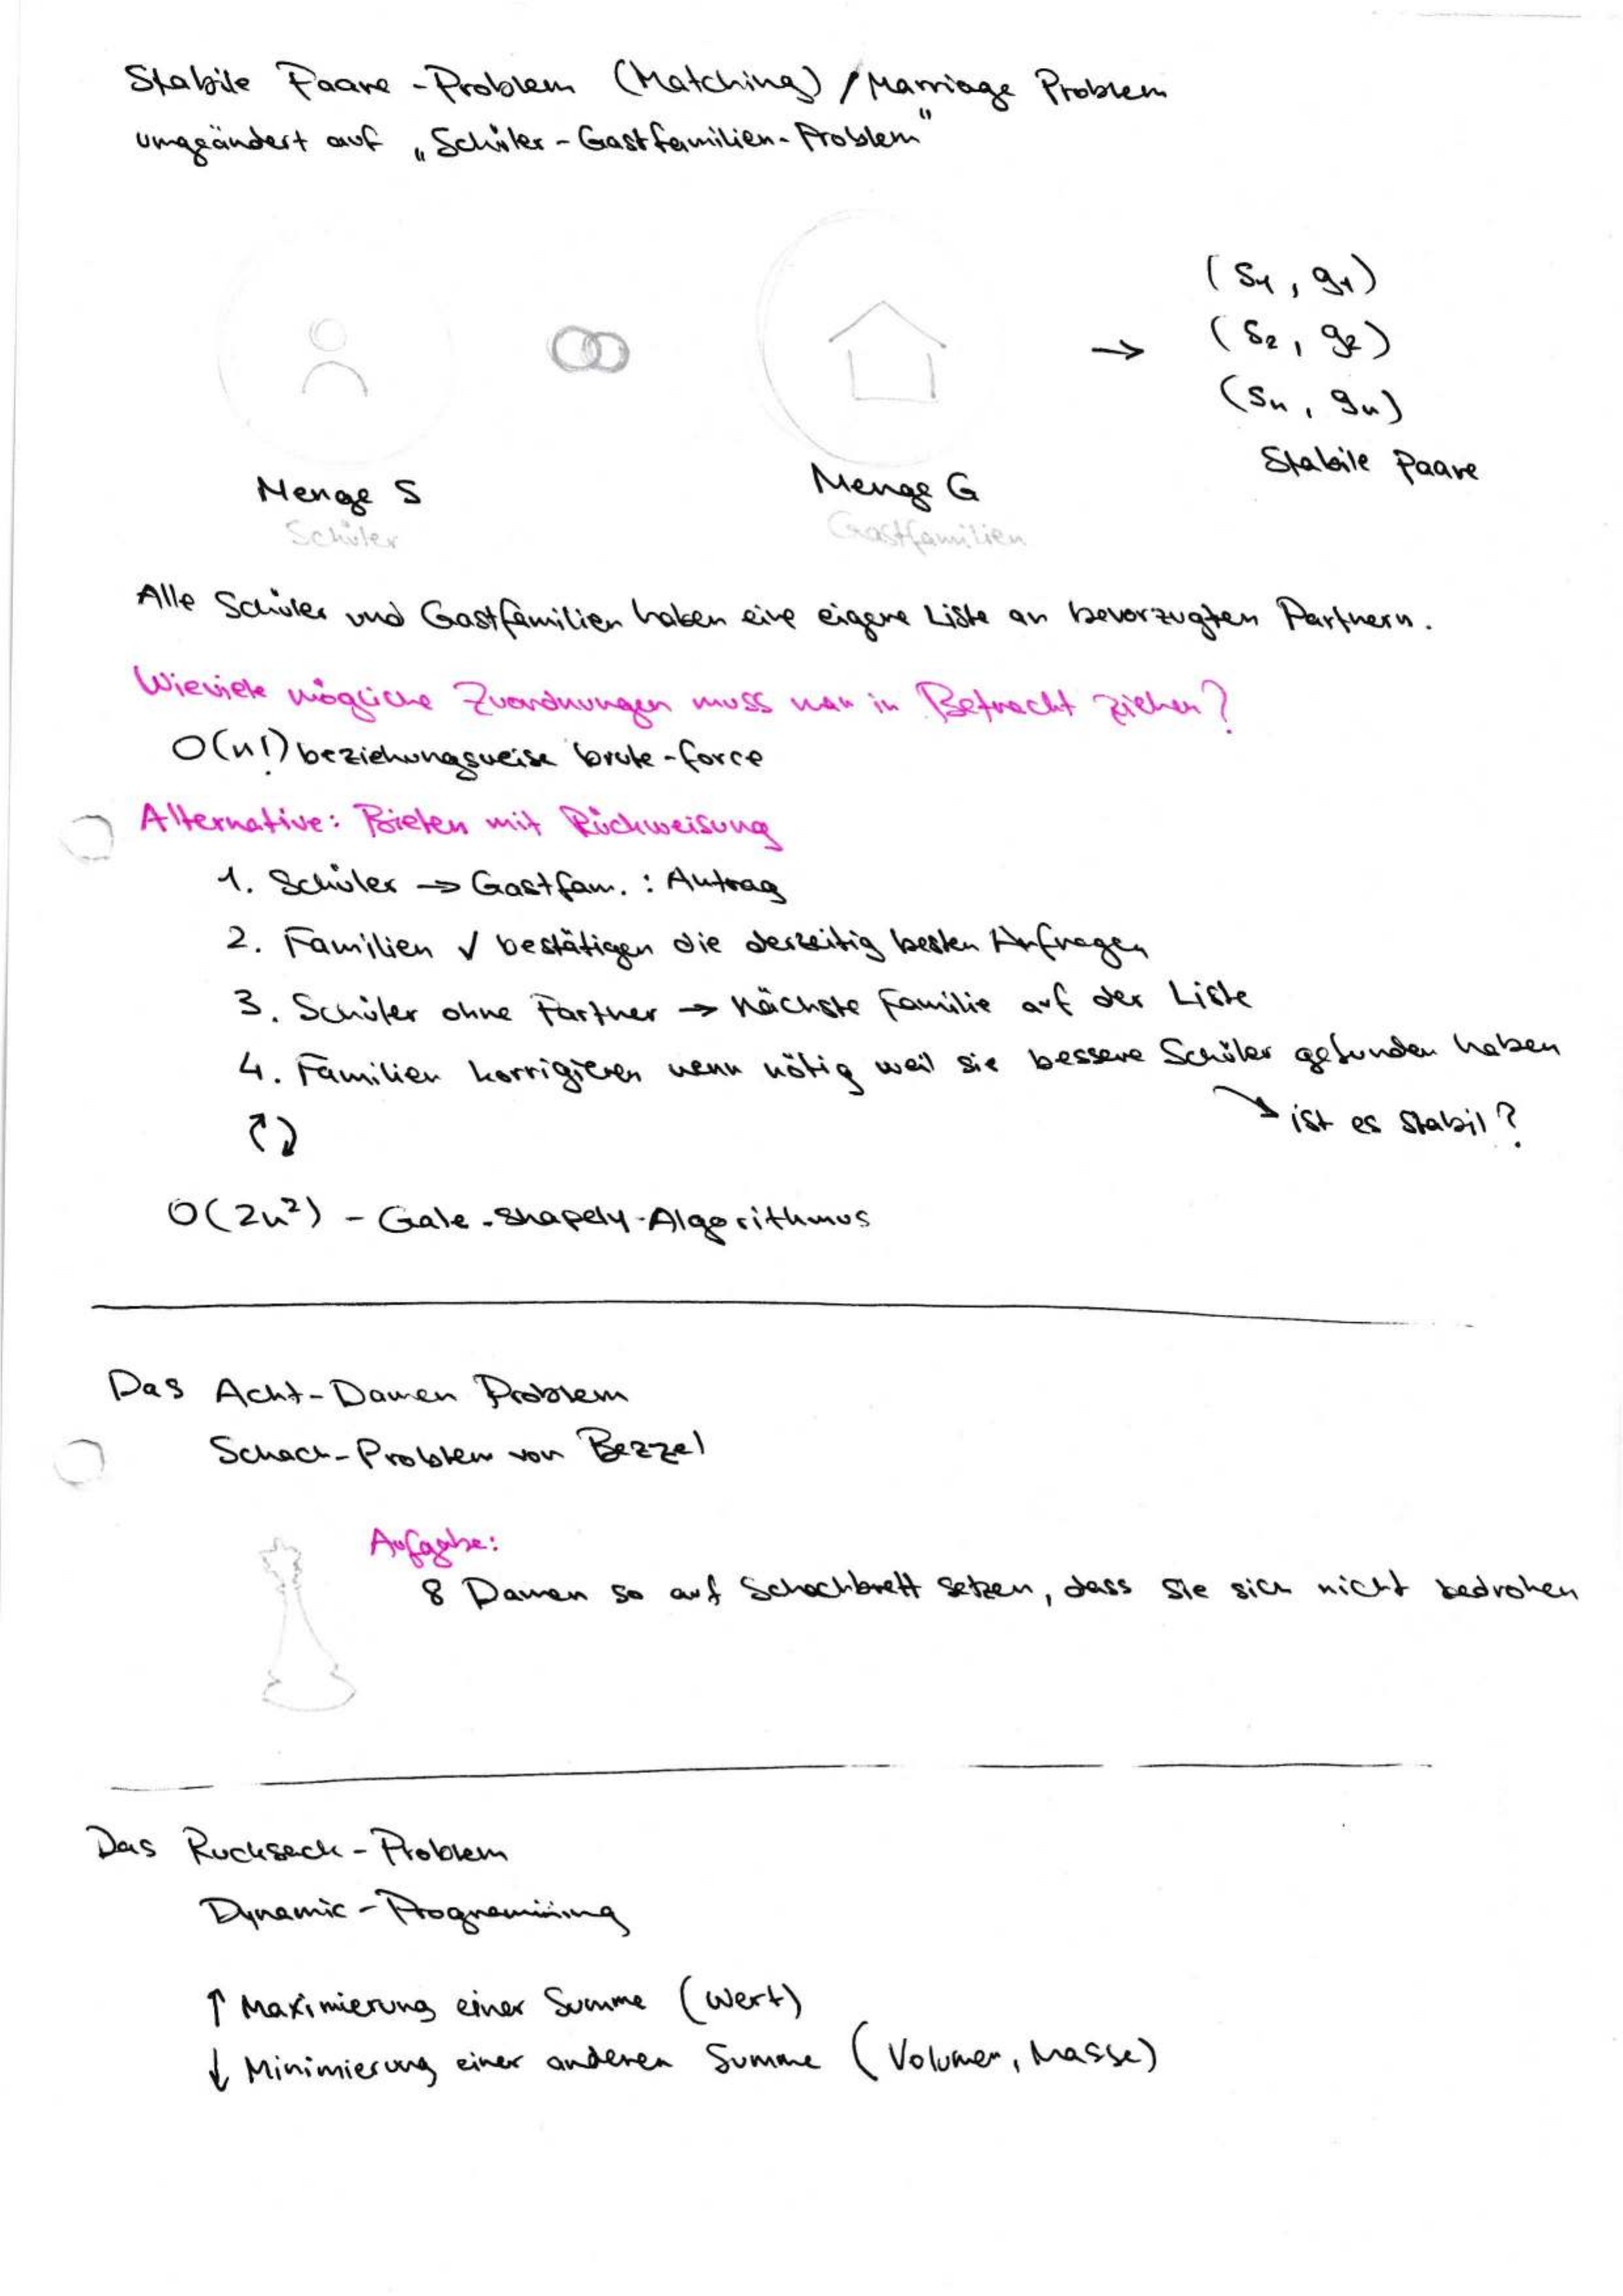 Stabile Paare - Problem (Matching) / Marriage Problem
umgeändert auf „Schüler - Gastfamilien - Problem"
(s1, g1)
(s2, g2)
(sn, gn)
Stabile Paare
Menge S
Schüler
Menge G
Gastfamilien
Alle Schüler und Gastfamilien haben eine eigene Liste an bevorzugten Partnern.
Wieviele mögliche Zuordnungen muss man in Betracht ziehen?
O(n!) beziehungsweise brute-force
Alternative: Bieten mit Rückweisung
1. Schüler → Gastfam. : Antrag
2. Familien ✓ bestätigen die derzeitig besten Anfragen
3. Schüler ohne Partner → Nächste Familie auf der Liste
4. Familien korrigieren wenn nötig weil sie bessere Schüler gefunden haben
↘ ist es stabil?
O(2n²) - Gale-Shapely-Algorithmus
Das Acht-Damen Problem
Schach-Problem von Bezzel
Aufgabe:
8 Damen so auf Schachbrett setzen, dass sie sich nicht bedrohen
Das Rucksack - Problem
Dynamic - Programming
↑ Maximierung einer Summe (Wert)
↓ Minimierung einer anderen Summe (Volumen, Masse)